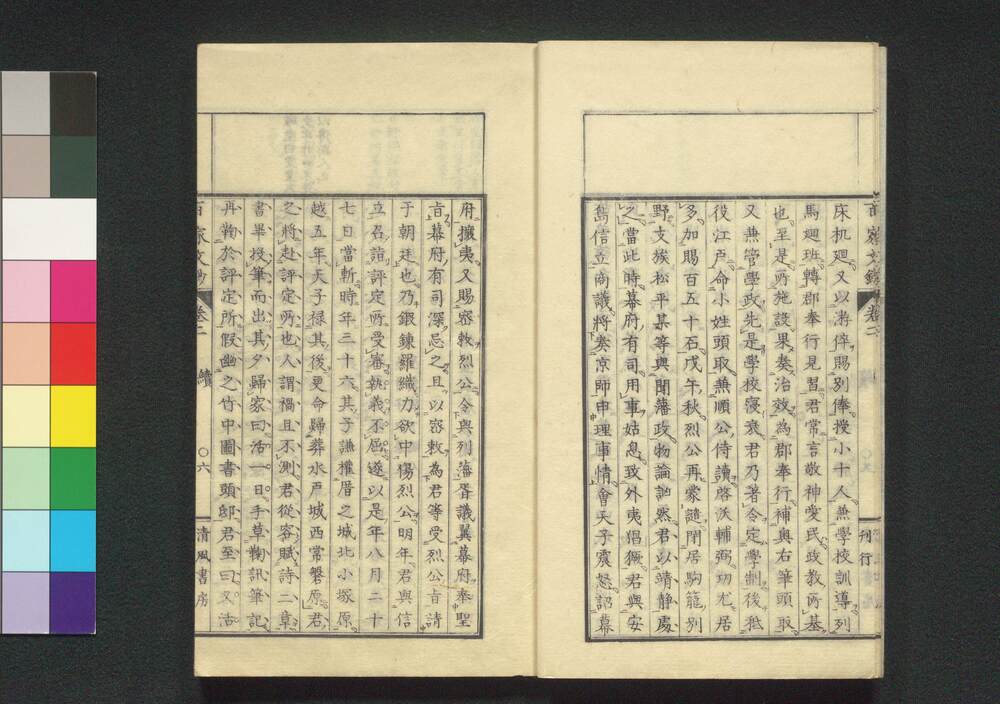 百家文鈔 卷二 刊行
床机廻又以游倅賜別俸擢小十人兼學校訓導列
馬廻班轉郡奉行見習君常言敬神愛民政教所基
也至是所施設果奏治效為郡奉行補奥右筆頭取
又兼管學政先是學校寝衰君乃著令定學制後祗
役江戸命小姓頭取兼順公侍讀啓沃輔弼功尤居
多加賜百五十石戊午秋烈公再蒙譴閉居駒籠別
野支族松平某等與聞藩政物論訩然君以靖静處
之當此時幕府有司用事姑息致外夷猖獗君與安
島信立商議將奏京師申理事情會天子震怒詔幕
府攘夷又賜密敕烈公令與列藩胥議翼幕府奉聖
旨幕府有司深忌之且以密敕為君等受烈公旨請
于朝廷也乃鍛錬羅織力欲中傷烈公明年君與信
立召詣評定所受審執義不屈遂以是年八月二十
七日當斬時年三十六其子謙權厝之城北小塚原
越五年天子禄其後更命歸葬水戸城西常磐原君
之將赴評定所也人謂禍且不測君從容賦詩二章
書畢投筆而出其夕歸家曰活一日手草鞫訊筆記
再鞫於評定所假幽之竹中圖書頭邸君至曰又活
百家文鈔 卷二 續 〇六 清風書房